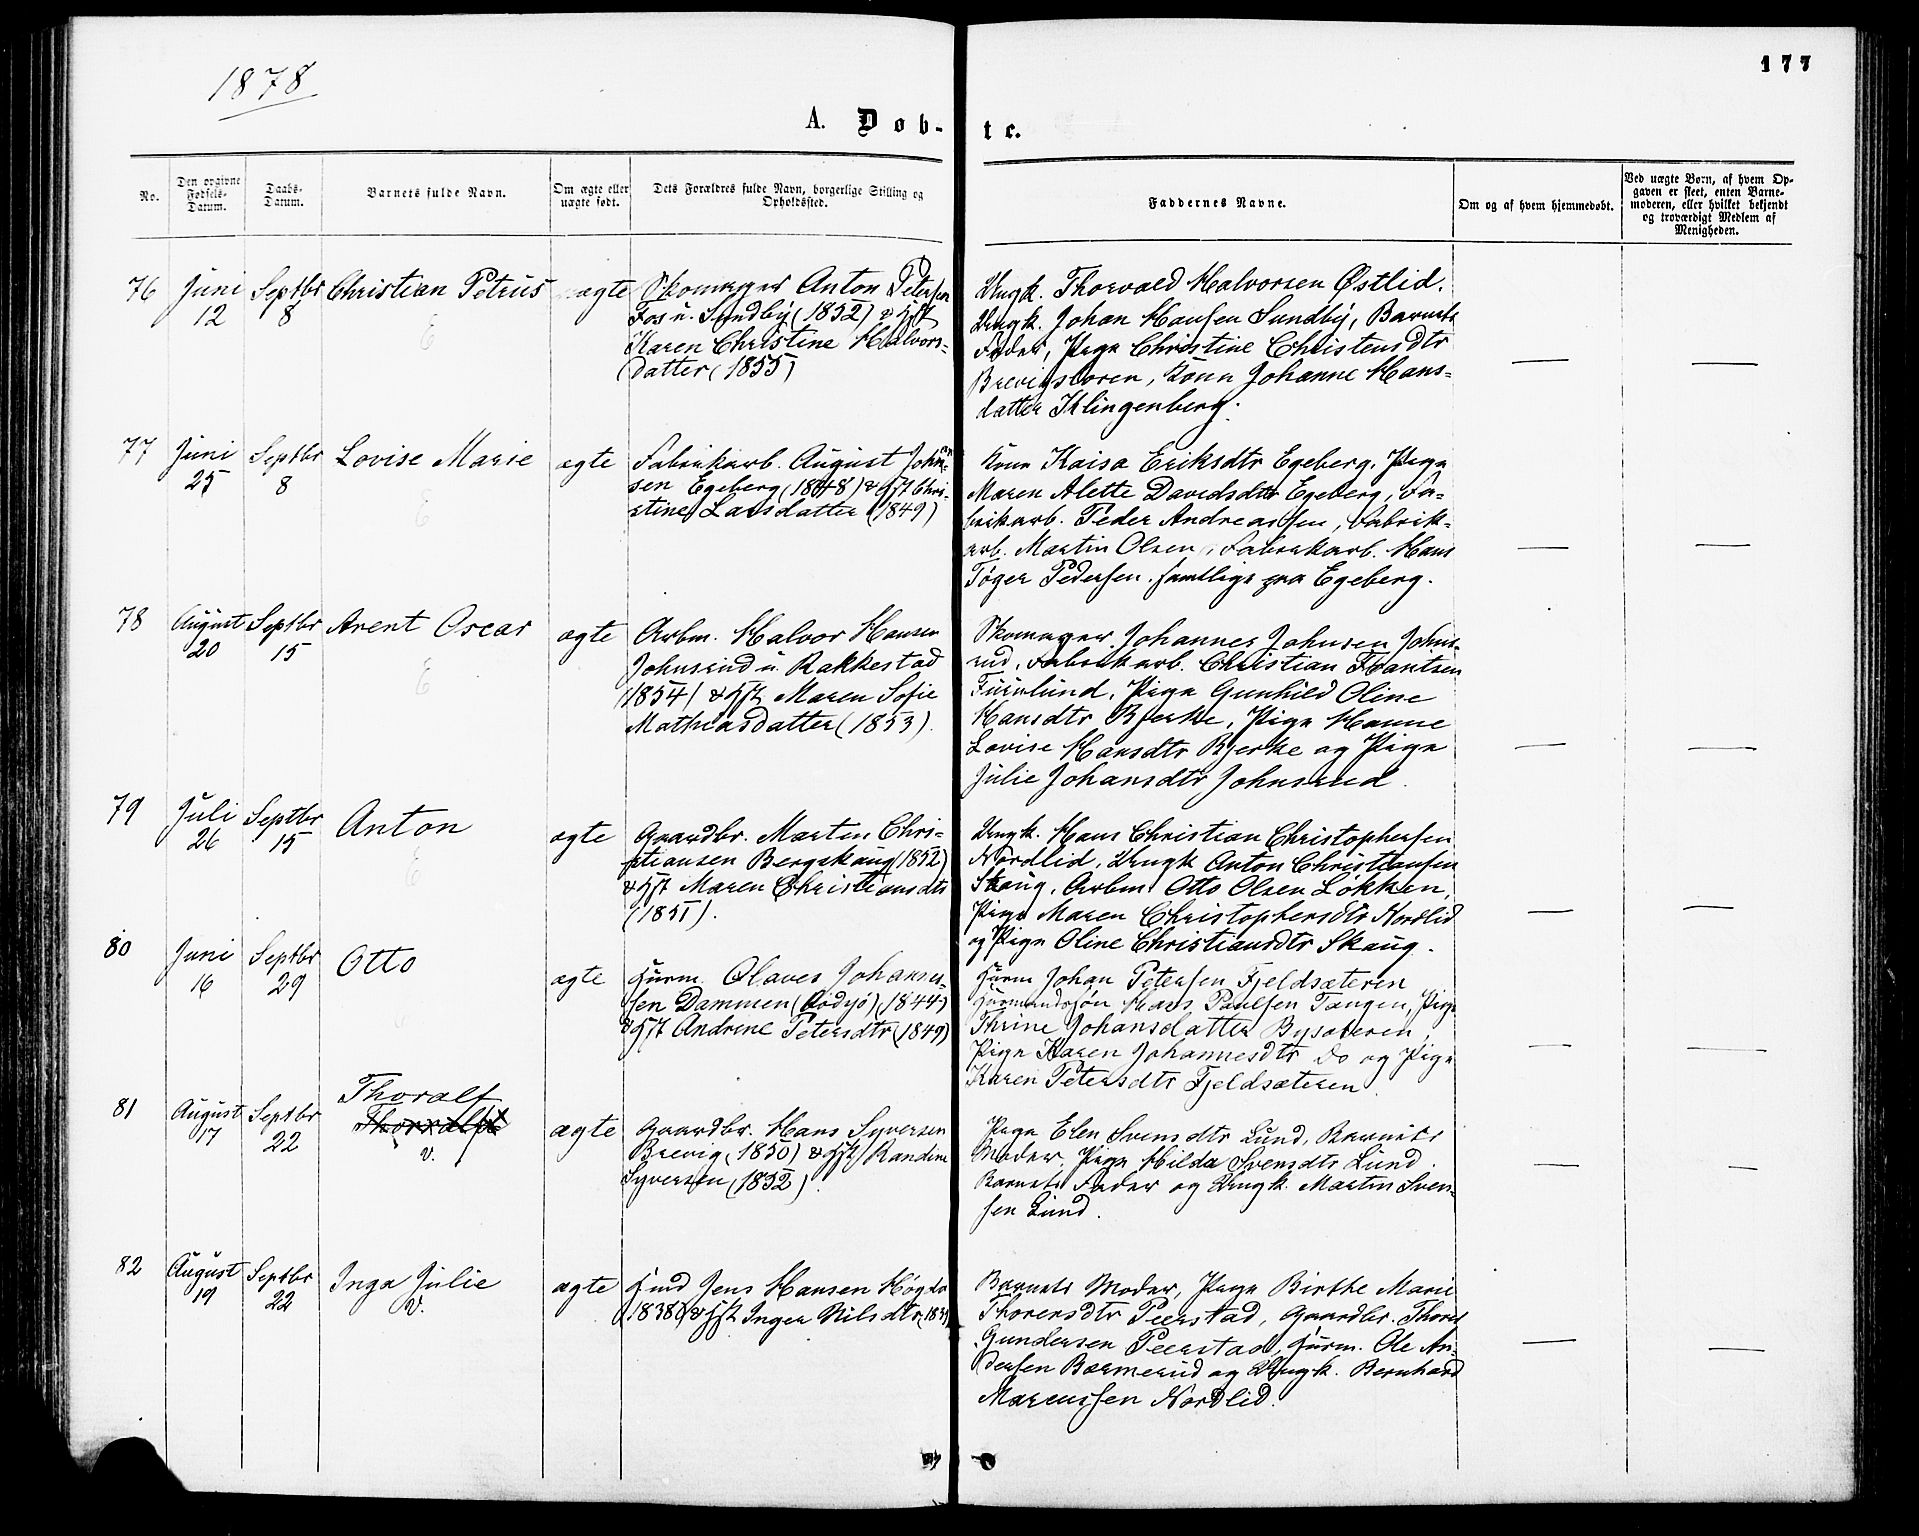 1878
177
A. Døb-
te.
No.
Den opgivne
Fødsels-
Datum.
Daabs-
Datum.
Barnets fulde Navn.
Om ægte eller
uægte født.
Dets Forældres fulde Navn, borgerlige Stilling og
Opholdssted.
Faddernes Navne.
Om og af hvem hjemmedøbt.
Ved uægte Børn, af hvem Op-
gaven er skeet, enten Barne-
moderen, eller hvilket bekjendt
og troværdigt Medlem af
Menigheden.
76
Juni
12
Septbr
8
Christian Petrus
E
ægte
Skomager Anton Petersen
Fos u. Sundby (1852) & Hst
Karen Christine Halvors-
datter (1855)
Ungk. Thorvald Halvorsen Østlid.
Ungk. Johan Hansen Sundby, Barnets
Fader, Pige Christine Christensdtr
Brevigstoren, Kone Johanne Hans-
datter Klingenberg.
77
Juni
25
Septbr
8
Lovise Marie
E
ægte
Fabrikarb. August Johan-
sen Egeberg (1848) & Hst Chri-
stine Larsdatter (1849)
Kone Kaisa Eriksdtr Egeberg, Pige
Maren Alette Davidsdtr Egeberg, Fa-
brikarb. Peder Andreassen, Fabrik-
arb. Martin Olsen, Fabrikarb. Hans
Tøger Pedersen. samtlige fra Egeberg.
78
August
20
Septbr
15
Arent Oscar
E
ægte
Arbm. Halvor Hansen
Johnsrud u. Rakkestad
(1854) & Hst Maren Sofie
Mathiasdatter (1853).
Skomager Johannes Johnsen Johns-
rud, Fabrikarb. Christian Frantsen
Furulund, Pige Gunhild Oline
Hansdtr Bjerke, Pige Hanne
Lovise Hansdtr Bjerke og Pige
Julie Johansdtr Johnsrud.
79
Juli
26
Septbr
15
Anton
E
ægte
Gaardbr. Martin Chri-
stiansen Bergskaug (1852)
& Hst Maren Christiansdtr
(1851).
Ungk. Hans Christian Christophersen
Nordlid, Ungk Anton Christiansen
Skaug, Arbm. Otto Olsen Løkken,
Pige Maren Christophersdtr Nordlid
og Pige Oline Christiansdtr Skaug.
80
Juni
16
Septbr
29
Otto
ægte
Husm. Olaves Johannes-
sen Dammen (Rødsjø) (1844)
& Hst Andrine Petersdtr (1849)
Husm Johan Petersen Fjeldsæteren
Husmandssøn Hans Paulsen Tangen, Pige
Thrine Johansdatter Bysæteren,
Pige Karen Johannesdtr do og Pige
Karen Petersdtr Fjeldsæteren.
81
August
17
Septbr
22
Thoralf
v.
ægte
Gaardbr. Hans Syversen
Brevig (1850) & Hst Randine
Syversen (1852).
Pige Elen Svensdtr Lund, Barnets
Moder, Pige Hilda Svensdtr Lund.
Barnets Fader og Ungk. Martin Sven-
sen Lund.
82
August
19
Septbr
22
Inga Julie
v.
ægte
Jens Hansen
(1838) & Hst Inger Nilsdtr
Barnets Moder, Pige Birthe Marie
Thorensdtr Peerstad, Gaardbr. Thore
Gundersen Peerstad, Husm. Ole An-
dersen Bermerud og Ungk. Bernhard
Marcussen Nordlid.